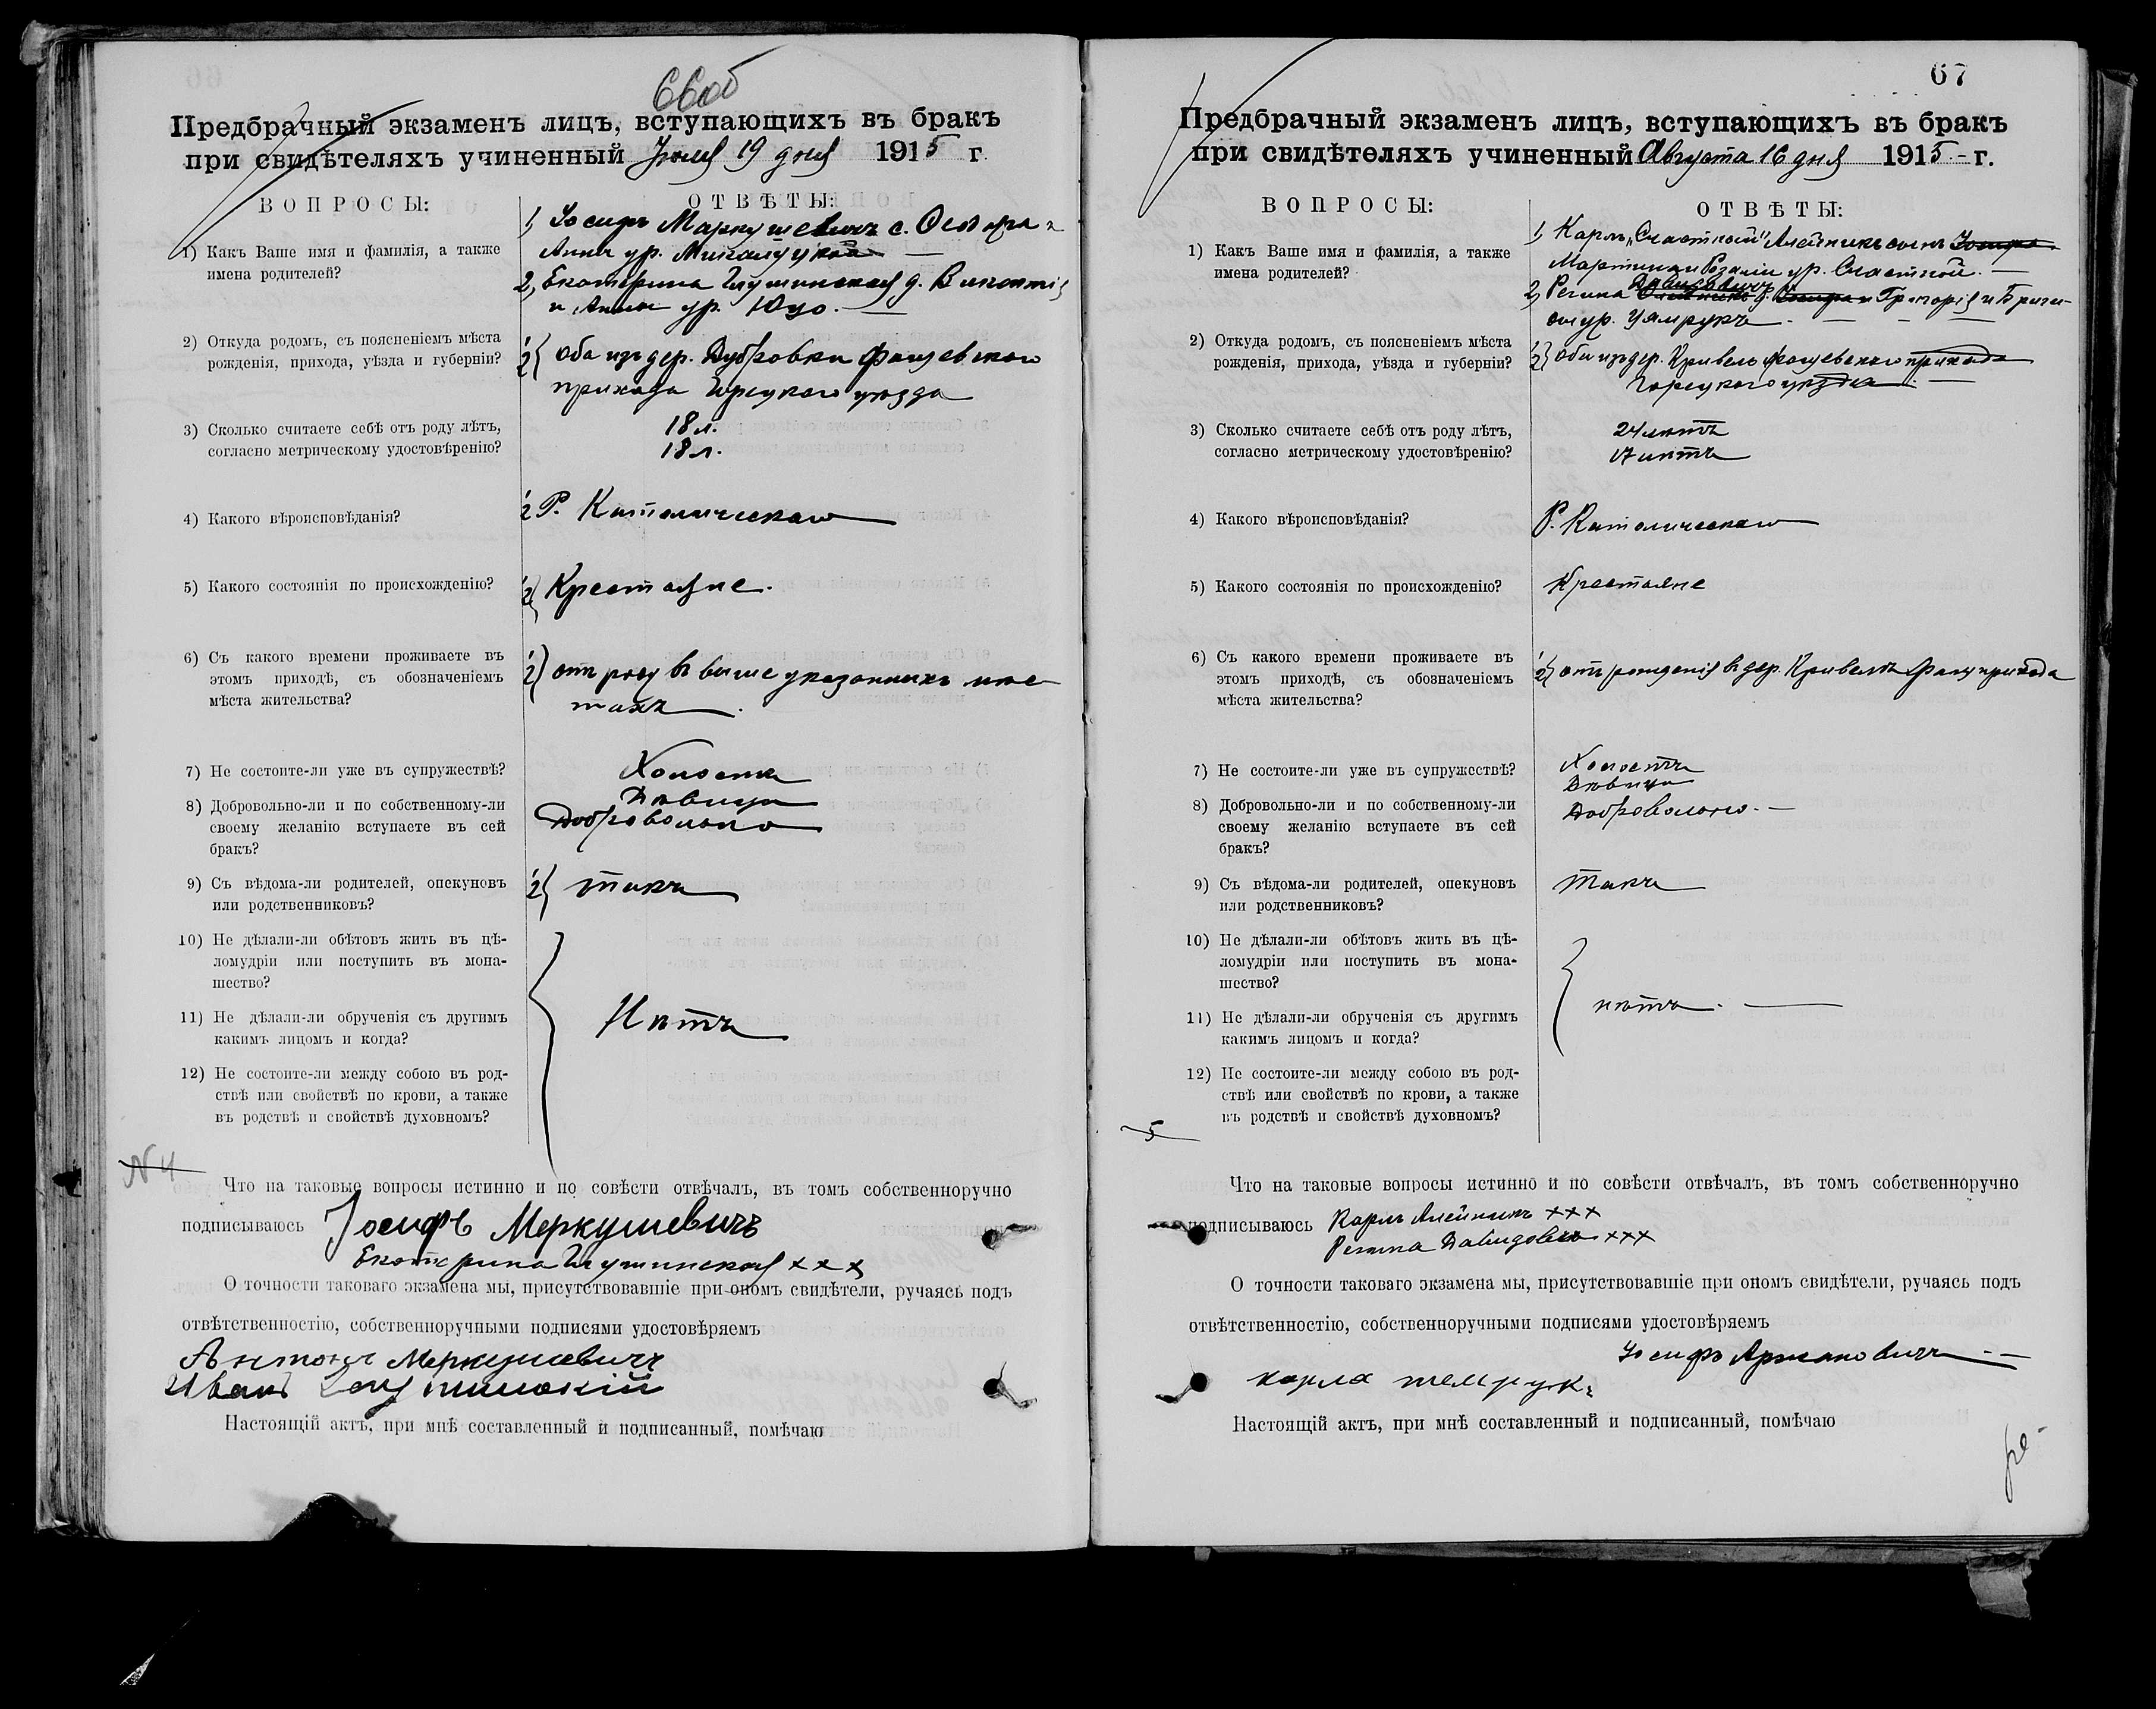 66об
Предбрачный экзаменъ лицъ, вступающихъ въ бракъ
при свидѣтеляхъ учиненный Іюля 19 дня 1915 г.
ВОПРОСЫ:
ОТВѢТЫ:
1) Какъ Ваше имя и фамилія, а также
имена родителей?
1) Іосифъ Маркушевичъ с.
Анны ур.
2) Екатерина Глушинская д. Викентія
и Анны ур. Юдо.
2) Откуда родомъ, съ поясненіемъ мѣста
рожденія, прихода, уѣзда и губерніи?
1 2 { Оба изъ дер. Дубровки Фащевскаго
прихода Горецкаго уѣзда
3) Сколько считаете себѣ отъ роду лѣтъ,
согласно метрическому удостовѣренію?
18 л.
18 л.
4) Какого вѣроисповѣданія?
1 2 Р. Католическаго
5) Какого состоянія по происхожденію?
1 2 { Крестьяне.
6) Съ какого времени проживаете въ
этомъ приходѣ, съ обозначеніемъ
мѣста жительства?
1 2 } отъ роду въ выше указанныхъ мѣс
тахъ.
7) Не состоите-ли уже въ супружествѣ?
Холостъ
Дѣвица
8) Добровольно-ли и по собственному-ли
своему желанію вступаете въ сей
бракъ?
Добровольно
9) Съ вѣдома-ли родителей, опекуновъ
или родственниковъ?
1 2 { такъ
10) Не дѣлали-ли обѣтовъ жить въ цѣ-
ломудріи или поступить въ мона-
шество?
11) Не дѣлали-ли обрученія съ другимъ
какимъ лицомъ и когда?
Нѣтъ
12) Не состоите-ли между собою въ род-
ствѣ или свойствѣ по крови, а также
въ родствѣ и свойствѣ духовномъ?
N 4
Что на таковые вопросы истинно и по совѣсти отвѣчалъ, въ томъ собственноручно
подписываюсь Іосифъ Меркушевичъ
Екатерина Глушинская xxx
О точности таковаго экзамена мы, присутствовавшіе при ономъ свидѣтели, ручаясь подъ
отвѣтственностію, собственноручными подписями удостовѣряемъ
Антонъ Меркушевичъ
Иванъ
Настоящій актъ, при мнѣ составленный и подписанный, помѣчаю
67
Предбрачный экзаменъ лицъ, вступающихъ въ бракъ
при свидѣтеляхъ учиненный Августа 16 дня 1915 г.
ВОПРОСЫ:
ОТВѢТЫ:
1) Какъ Ваше имя и фамилія, а также
имена родителей?
1) Карлъ „Счастный" Алейникъ сынъ Іосифа
Мартина и Розаліи ур. Счастной.
Давидовичъ
2) Регина Алейникъ д. Іосифа и Григорія и Бриги-
ды ур. Цямрукъ
2) Откуда родомъ, съ поясненіемъ мѣста
рожденія, прихода, уѣзда и губерніи?
1 2 } Оба изъ дер. Кривель Фащевскаго прихода
Горецкаго уѣзда
3) Сколько считаете себѣ отъ роду лѣтъ,
согласно метрическому удостовѣренію?
24 лѣтъ
17 лѣтъ
4) Какого вѣроисповѣданія?
Р. Католическаго
5) Какого состоянія по происхожденію?
Крестьяне
6) Съ какого времени проживаете въ
этомъ приходѣ, съ обозначеніемъ
мѣста жительства?
1 2 } отъ рожденія въ дер. Кривель Фащ прихода
7) Не состоите-ли уже въ супружествѣ?
Холостъ
Дѣвица
8) Добровольно-ли и по собственному-ли
своему желанію вступаете въ сей
бракъ?
Добровольно.
9) Съ вѣдома-ли родителей, опекуновъ
или родственниковъ?
Такъ
10) Не дѣлали-ли обѣтовъ жить въ цѣ-
ломудріи или поступить въ мона-
шество?
нѣтъ.
11) Не дѣлали-ли обрученія съ другимъ
какимъ лицомъ и когда?
12) Не состоите-ли между собою въ род-
ствѣ или свойствѣ по крови, а также
въ родствѣ и свойствѣ духовномъ?
5
Что на таковые вопросы истинно и по совѣсти отвѣчалъ, въ томъ собственноручно
подписываюсь Карлъ Алейникъ xxx
Регина Давидовичъ xxx
О точности таковаго экзамена мы, присутствовавшіе при ономъ свидѣтели, ручаясь подъ
отвѣтственностію, собственноручными подписями удостовѣряемъ
Іосифъ
карла
Настоящій актъ, при мнѣ составленный и подписанный, помѣчаю